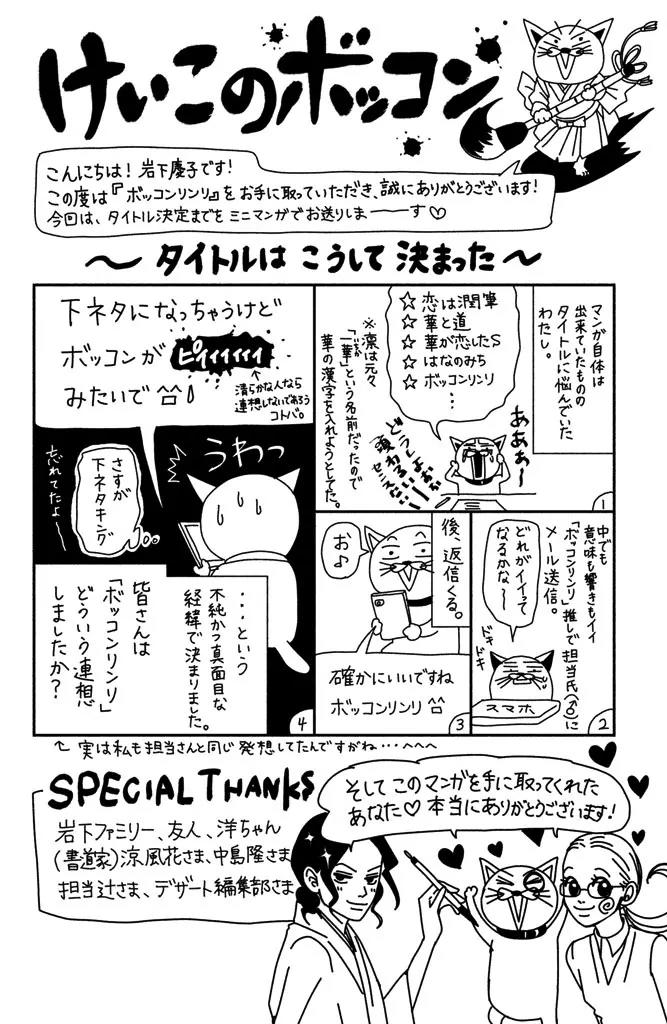 けいこのボッコン
こんにちは！岩下慶子です！
この度は『ボッコンリンリ』をお手に取っていただき、誠にありがとうございます！
今回は、タイトル決定までをミニマンガでお送りしまーーす♡
〜タイトルはこうして決まった〜
マンガ自体は
出来ていたものの
タイトルに悩んでいた
わたし。
☆恋は潤筆
☆華と道
☆華が恋したS
☆はなのみち
☆ボッコンリンリ
…
※凛は元々
「一華」という名前だったので
華の漢字を入れようとしてた。
あああ〜
1
中でも
意味も響きもイイ
「ボッコンリンリ」推しで担当氏(♂)に
メール送信。
どれがイイって
なるかな〜
ドキ
ドキ
スマホ
2
後、返信くる。
お♪
確かにいいですね
ボッコンリンリ^^
3
下ネタになっちゃうけど
ボッコンが
ピィィィィィィ
みたいで^^♪
清らかな人なら
連想しないであろう
コトバ。
うわっ
さすが
下ネタキング
忘れてたよー
…という
不純かつ真面目な
経緯で決まりました。
皆さんは
「ボッコンリンリ」
どういう連想
しましたか？
4
実は私も担当さんと同じ発想してたんですがね…へへへ
SPECIAL THANKS
岩下ファミリー、友人、洋ちゃん
(書道家)涼風花さま、中島隆さま
担当辻さま、デザート編集部さま
そしてこのマンガを手に取ってくれた
あなた♡本当にありがとうございます！